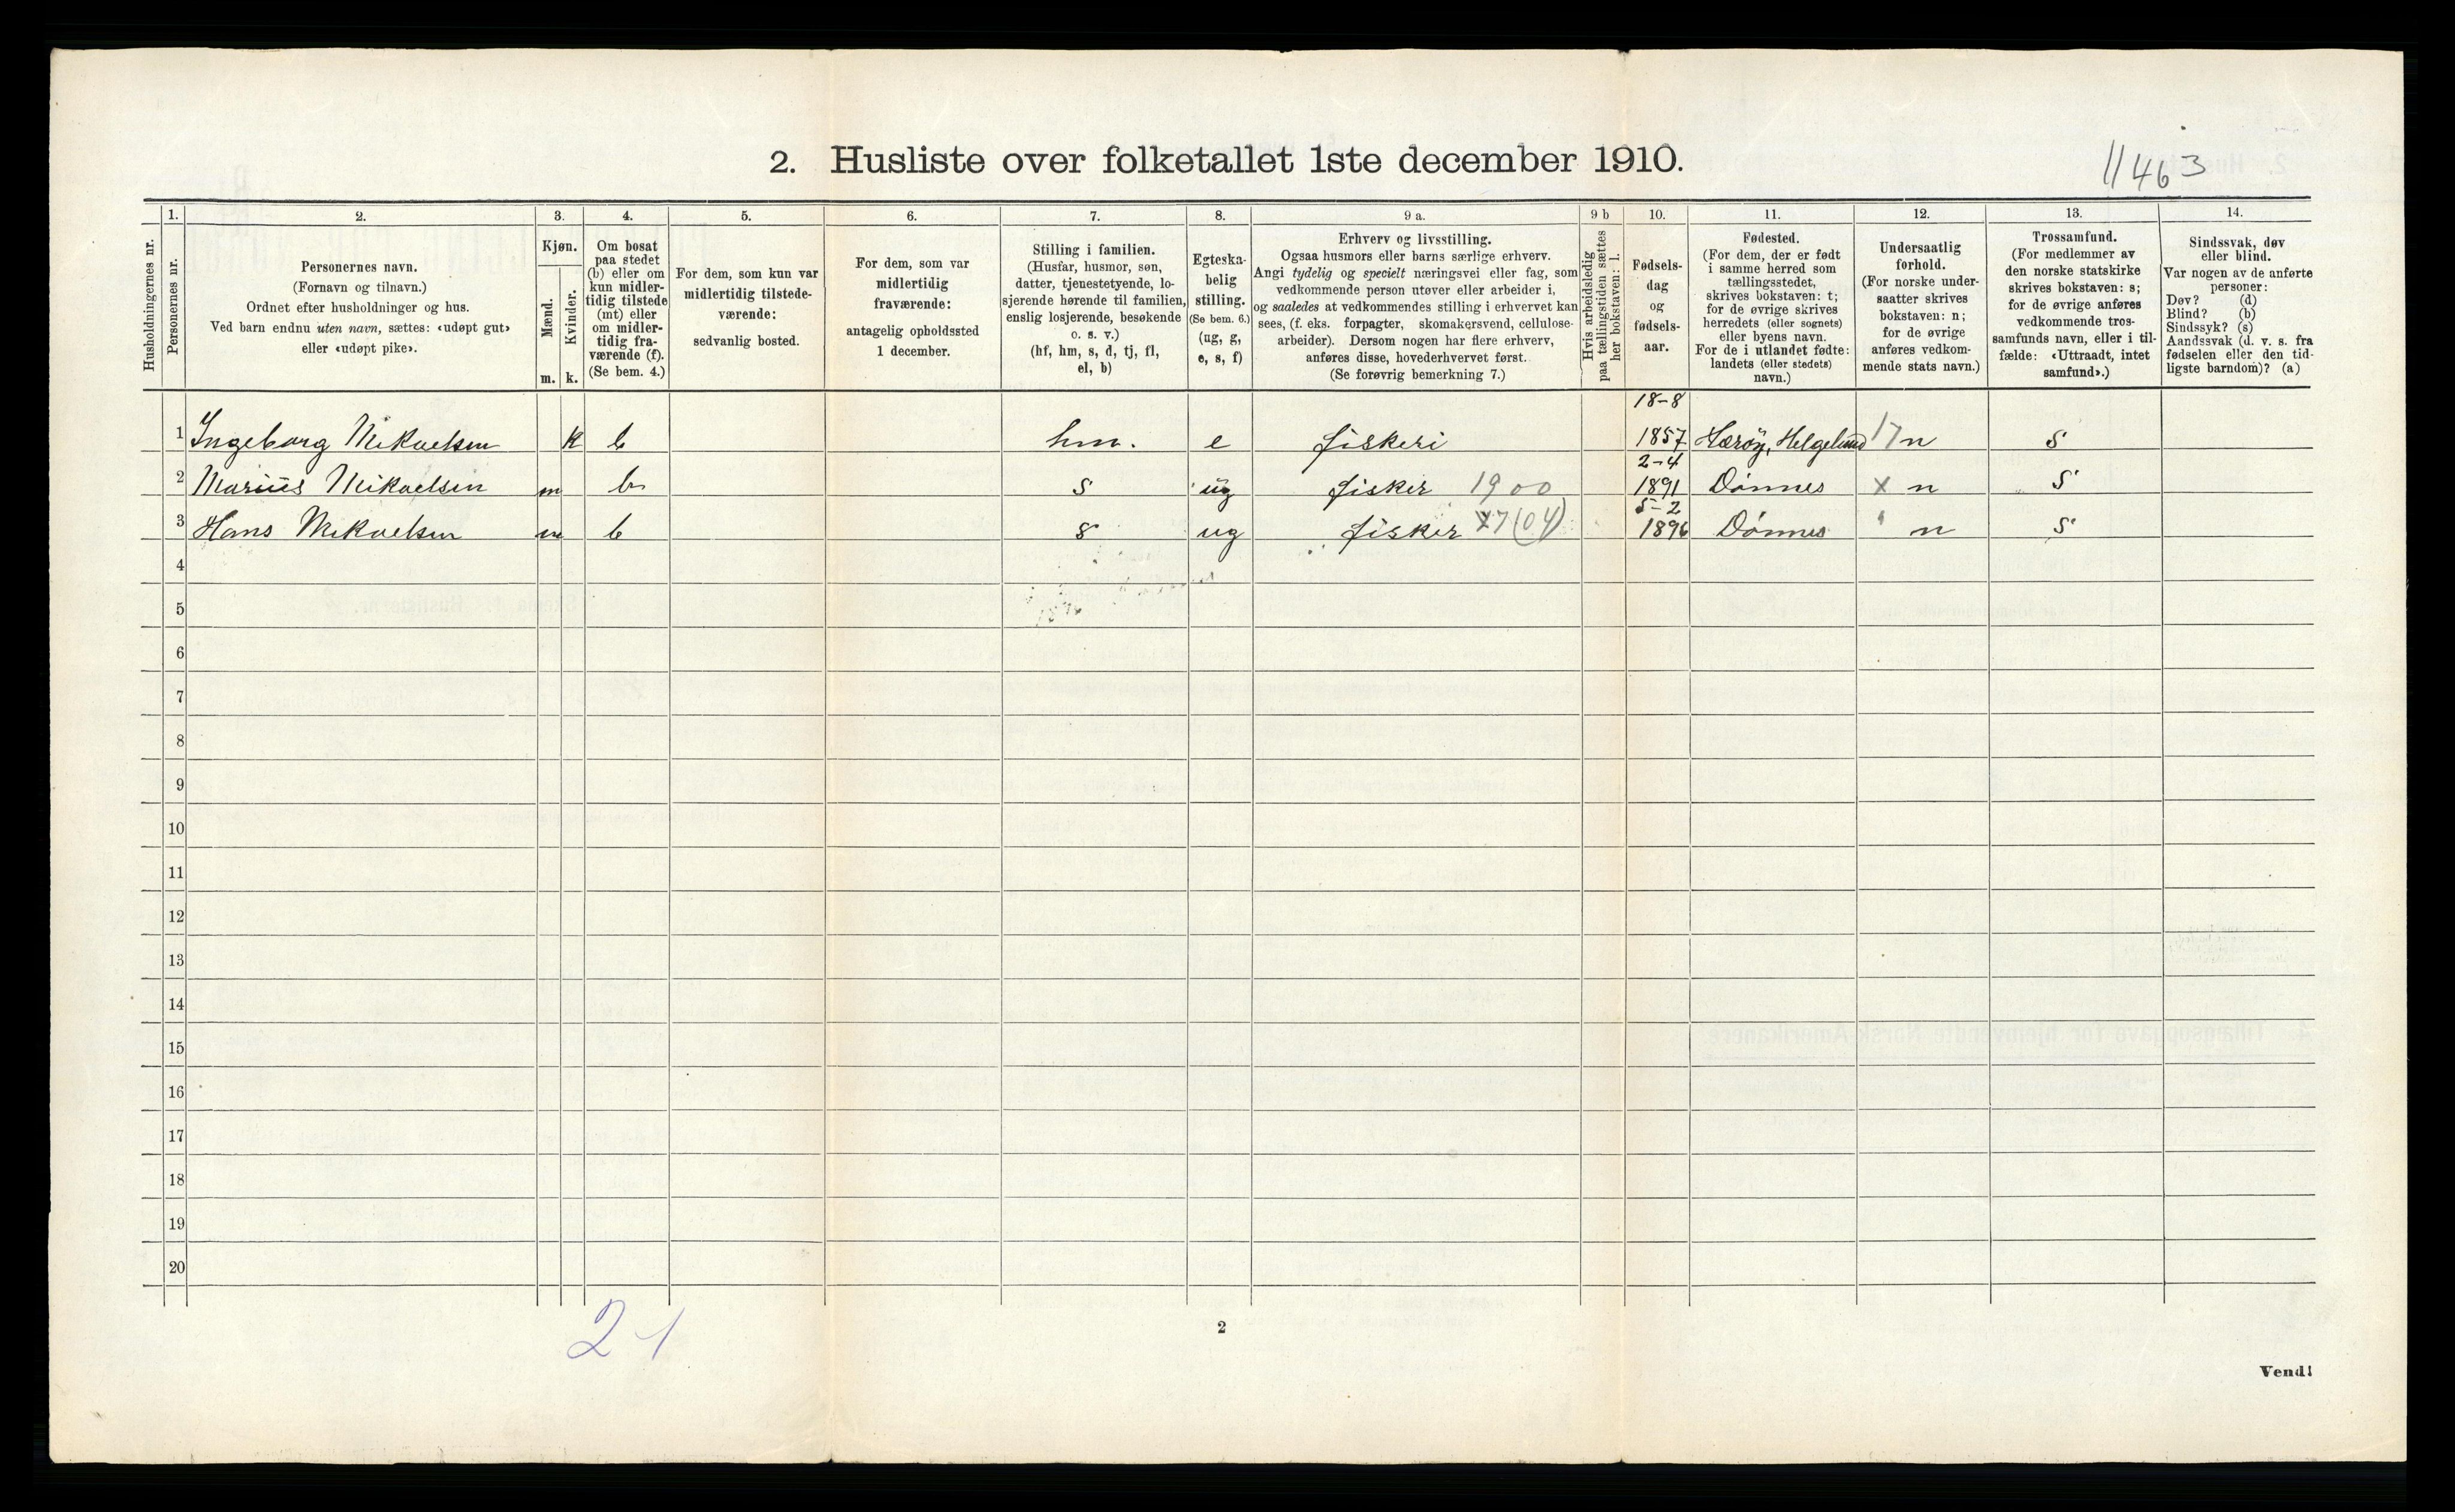 2. Husliste over folketallet 1ste december 1910.
11463
Husholdningernes nr.
1.
Personernes nr.
2.
Personernes navn.
(Fornavn og tilnavn.)
Ordnet efter husholdninger og hus.
Ved barn endnu uten navn, sættes: «udøpt gut»
eller «udøpt pike».
3.
Kjøn.
Mænd.
Kvinder.
m. k.
4.
Om bosat
paa stedet
(b) eller om
kun midler-
tidig tilstede
(mt) eller
om midler-
tidig fra-
værende (f).
(Se bem. 4.)
5.
For dem, som kun var
midlertidig tilstede-
værende:
sedvanlig bosted.
6.
For dem, som var
midlertidig
fraværende:
antagelig opholdssted
1 december.
7.
Stilling i familien.
(Husfar, husmor, søn,
datter, tjenestetyende, lo-
sjerende hørende til familien,
enslig losjerende, besøkende
o. s. v.)
(hf, hm, s, d, tj, fl,
el, b)
8.
Egteska-
belig
stilling.
(Se bem. 6.)
(ug, g,
e, s, f)
9 a.
Erhverv og livsstilling.
Ogsaa husmors eller barns særlige erhverv.
Angi tydelig og specielt næringsvei eller fag, som
vedkommende person utøver eller arbeider i,
og saaledes at vedkommendes stilling i erhvervet kan
sees, (f. eks. forpagter, skomakersvend, cellulose-
arbeider). Dersom nogen har flere erhverv,
anføres disse, hovederhvervet først.
(Se forøvrig bemerkning 7.)
9 b
Hvis arbeidsledig
paa tællingstiden sættes
her bokstaven: l.
10.
Fødsels-
dag
og
fødsels-
aar.
11.
Fødested.
(For dem, der er født
i samme herred som
tællingsstedet,
skrives bokstaven: t;
for de øvrige skrives
herredets (eller sognets)
eller byens navn.
For de i utlandet fødte:
landets (eller stedets)
navn.)
12.
Undersaatlig
forhold.
(For norske under-
saatter skrives
bokstaven: n;
for de øvrige
anføres vedkom-
mende stats navn.)
13.
Trossamfund.
(For medlemmer av
den norske statskirke
skrives bokstaven: s;
for de øvrige anføres
vedkommende tros-
samfunds navn, eller i til-
fælde: «Uttraadt, intet
samfund».)
14.
Sindssvak, døv
eller blind.
Var nogen av de anførte
personer:
Døv? (d)
Blind? (b)
Sindssyk? (s)
Aandssvak (d. v. s. fra
fødselen eller den tid-
ligste barndom)? (a)
18-8
1 Ingeborg Mikaelsen k b hm. e fiskeri 1857 Herøy, Helgeland 17 n s
2-4
2 Marius Mikaelsen m b s ug fisker 1900 1891 Dønnes x n s
5-2
3 Hans Mikaelsen m b s ug fisker x7(04) 1896 Dønnes " n s
4
5
6
7
8
9
10
11
12
13
14
15
16
17
18
19
20
2 1
2
Vend!